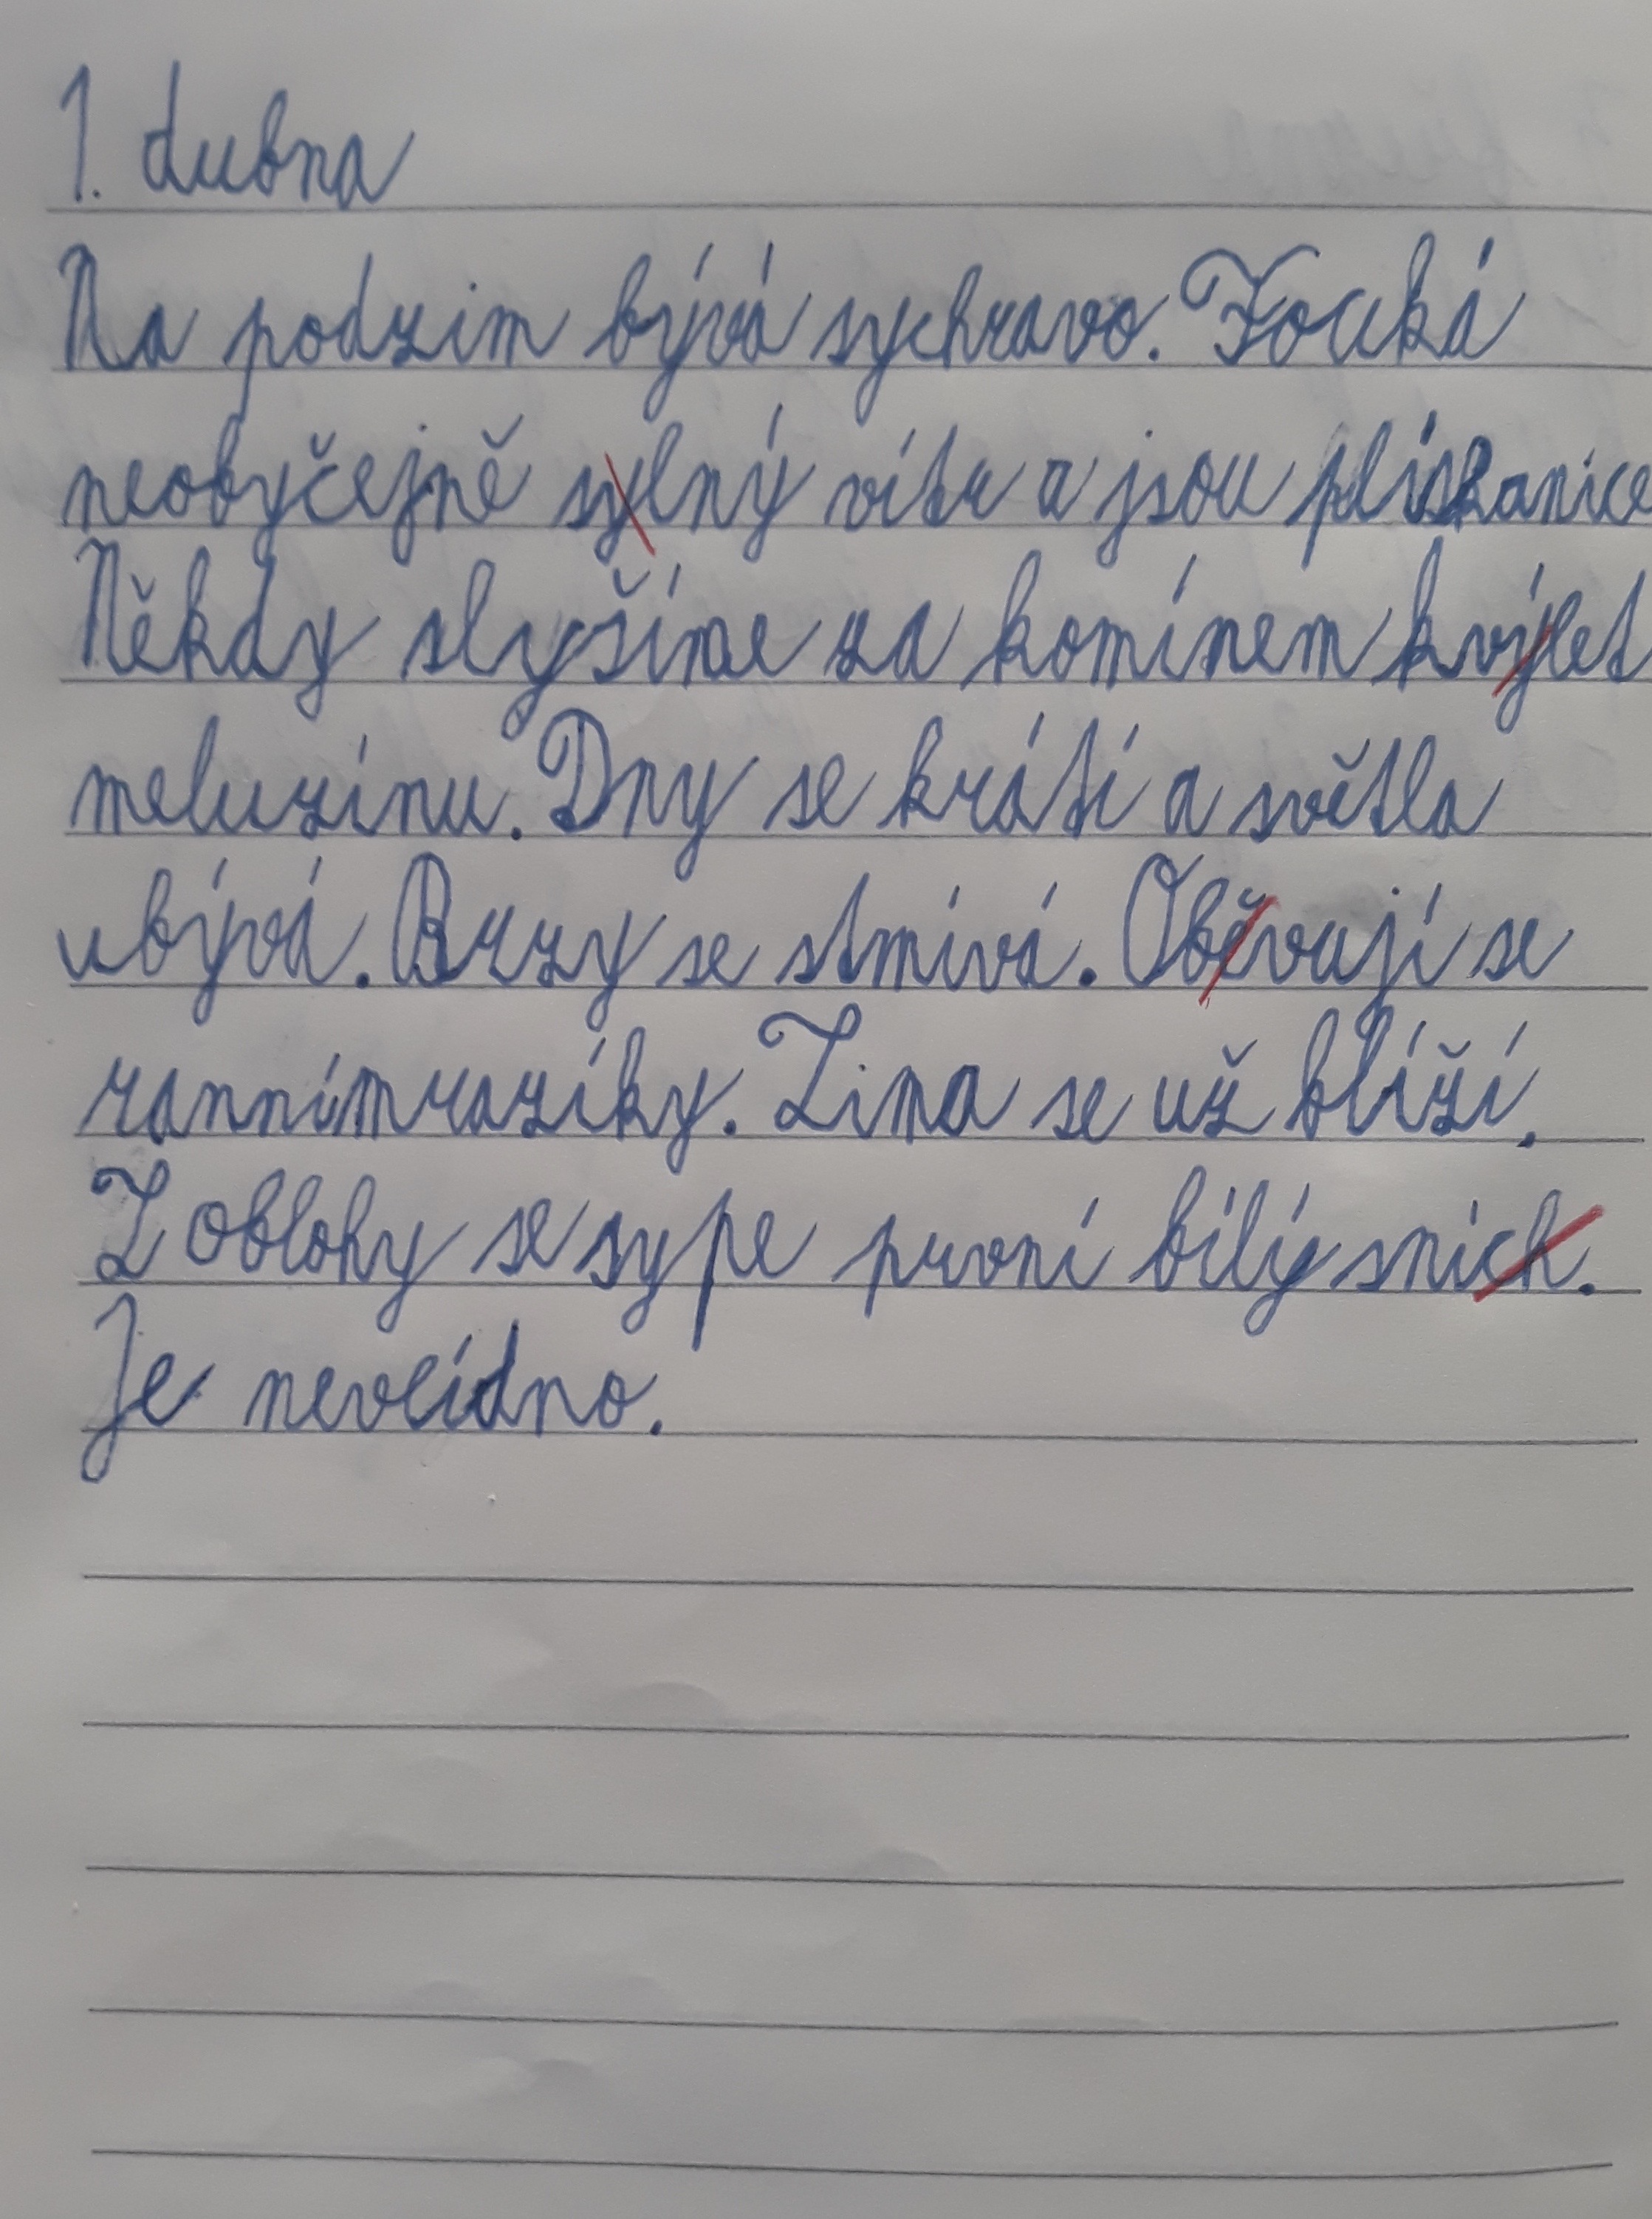 1. dubna
Na podzim bývá sychravo. Fouká
neobyčejně sylný vítr a jsou plískanice
Někdy slyšíme za komínem kvýlet
meluzínu. Dny se krátí a světla
ubývá. Brzy se stmívá. Oběvují se
ranní mrazíky. Zima se už blíží.
Z oblohy se sype první bílý sních.
Je nevlídno.